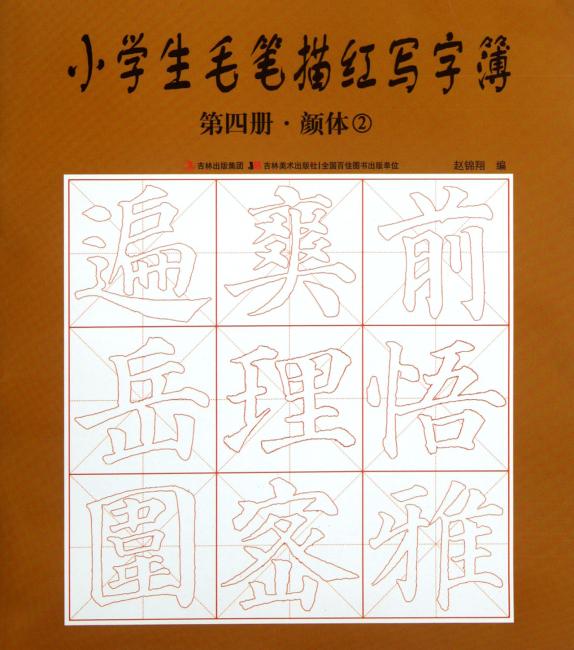 小学生毛笔描红写字簿
第四册·颜体②
吉林出版集团 吉林美术出版社|全国百佳图书出版单位 赵锦翔 编
遍 爽 前
岳 理 悟
圖 密 雅